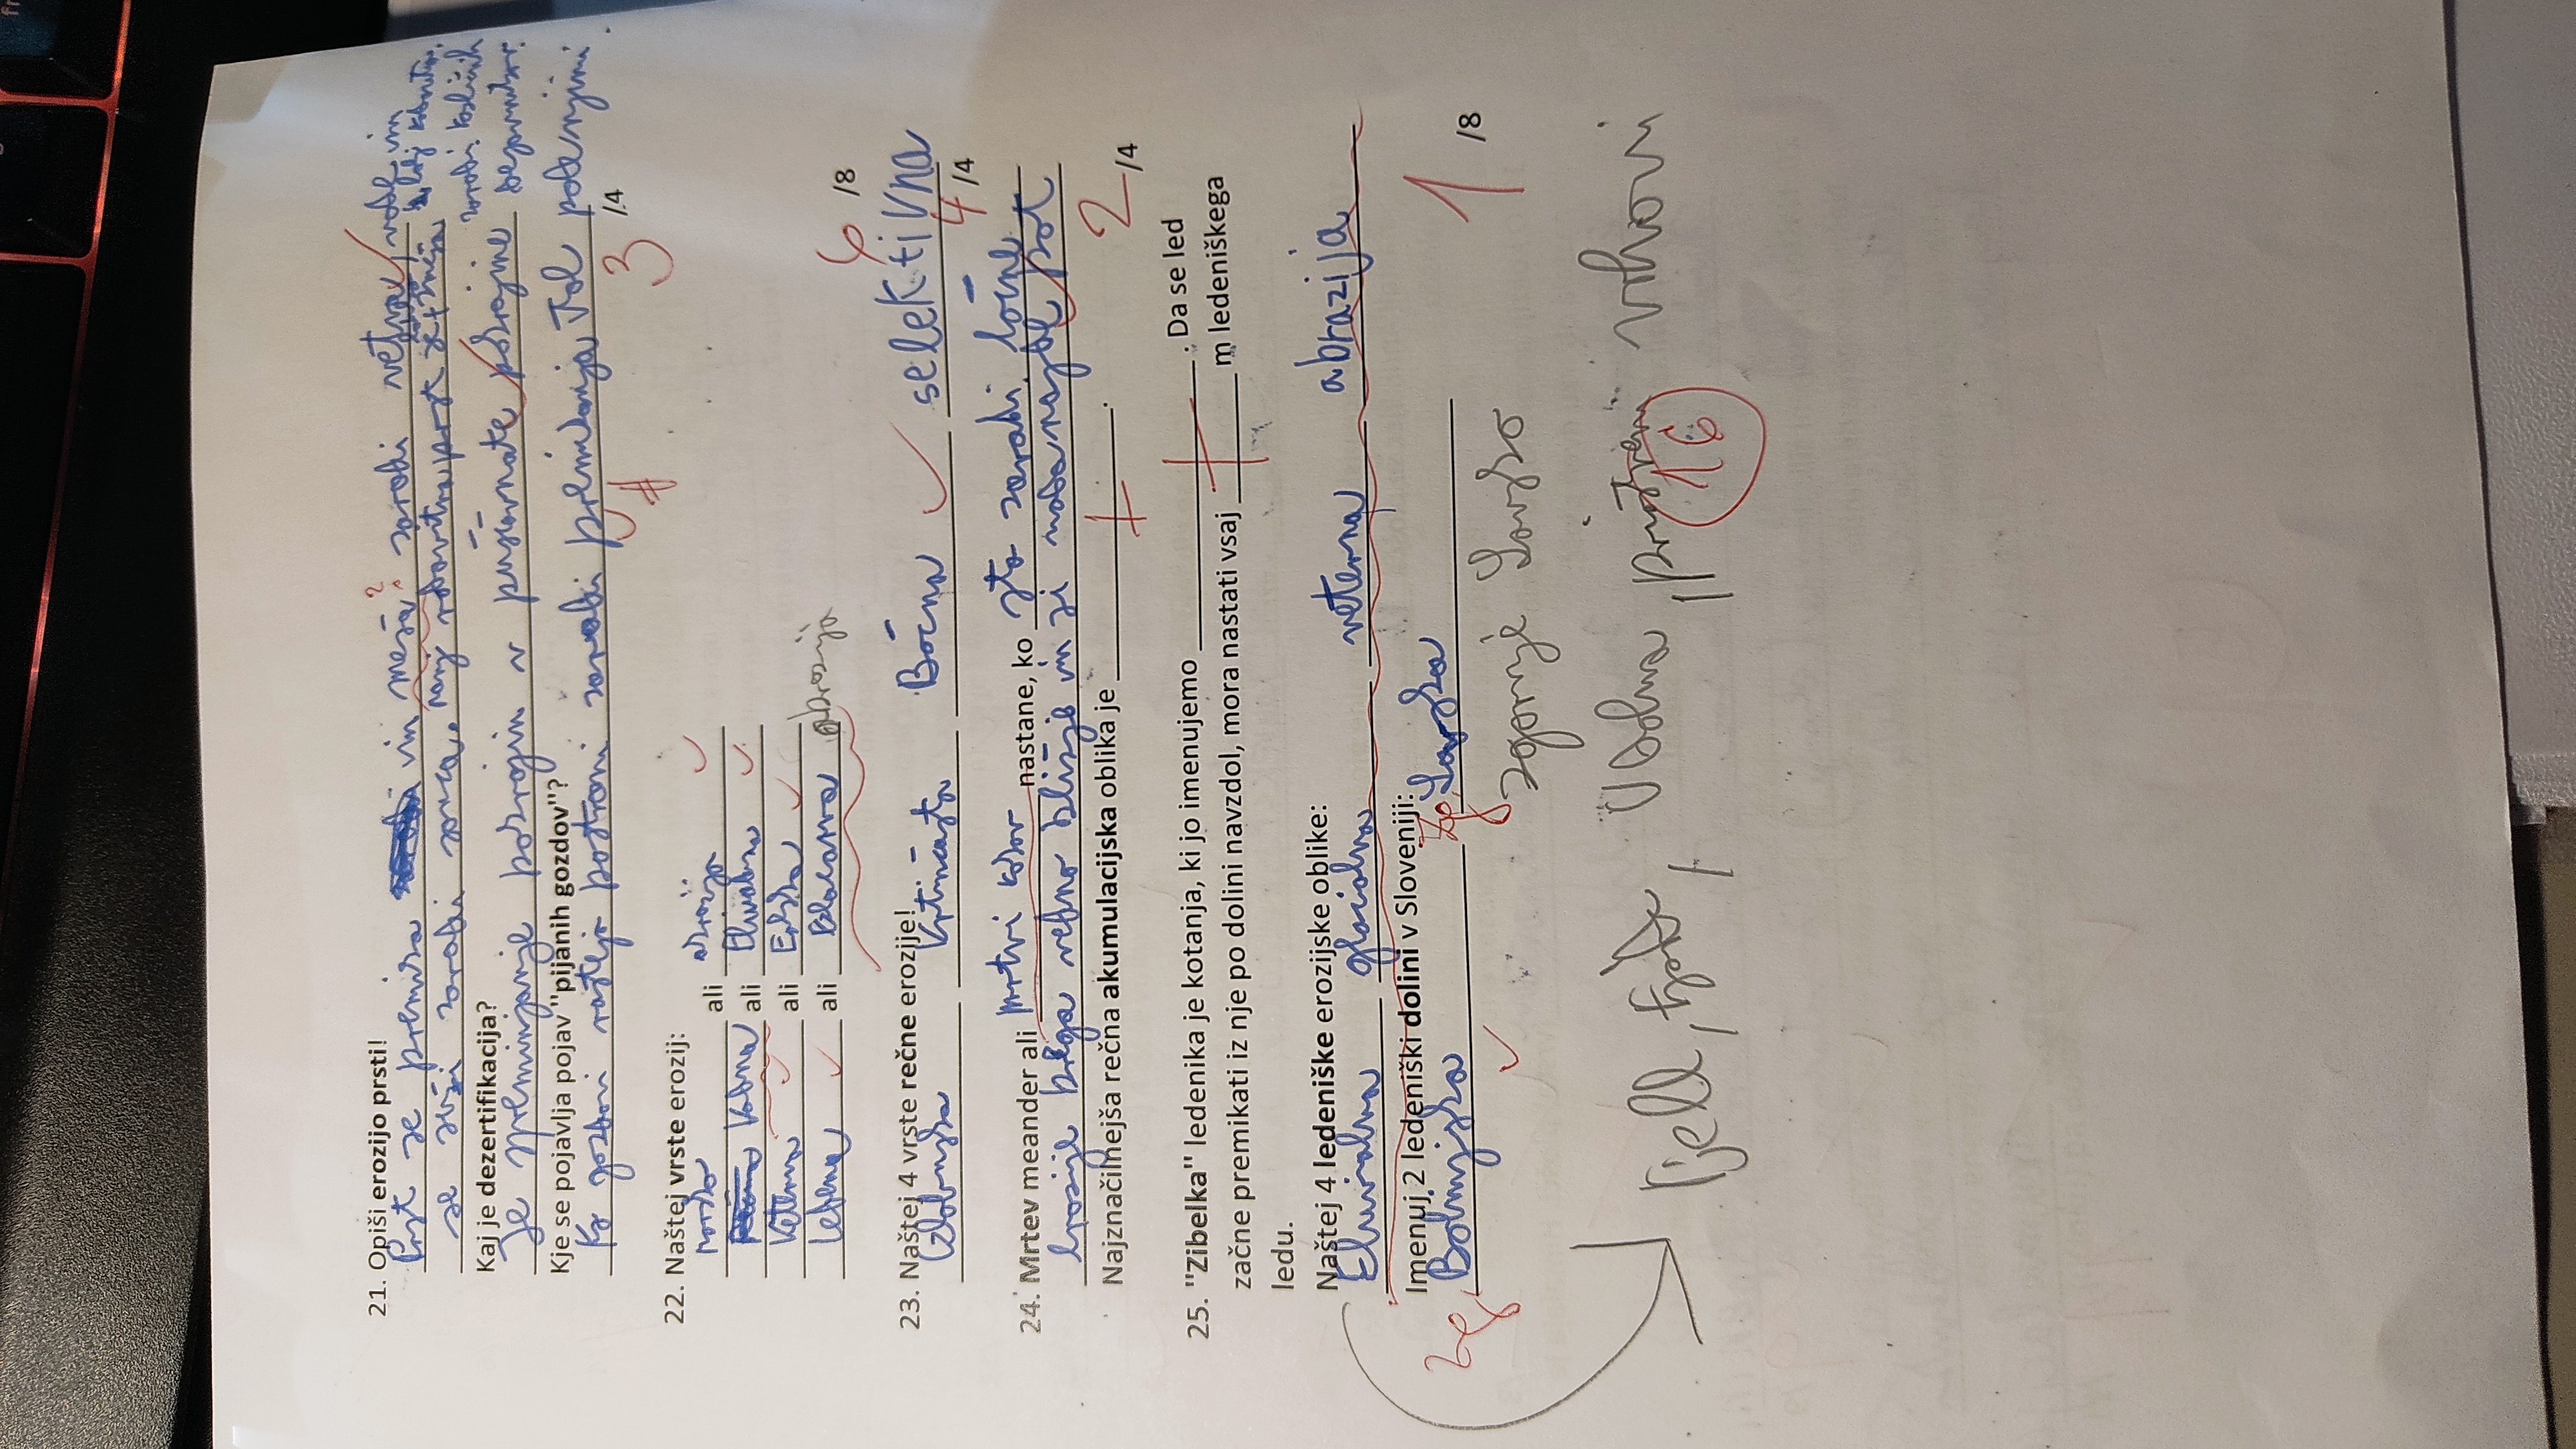 21. Opiši erozijo prsti!
Prst se premika in meša ? zaradi vetra, vode in
se suši zaradi sonca. manj rodovitna prst se meša z bolj
zaradi različnih
Kaj je dezertifikacija?
Je spreminjanje pokrajin v puščavnate pokrajine dejavnikov.
Kje se pojavlja pojav "pijanih gozdov"?
Ko gozdovi rastejo postrani zaradi premikanja tal pod njimi.
3 /4
22. Naštej vrste erozij:
morska ali abrazija
Vodna ali Eluvialna
Veterna ali Eolska
Ledena ali abrazija
6 /8
23. Naštej 4 vrste rečne erozije!
Globinska Bočna selektivna
4 /4
24. Mrtev meander ali mrtvi rokav nastane, ko sta zaradi bočne
erozije brega vedno bližje in si voda najde pot
Najznačilnejša rečna akumulacijska oblika je .
2 /4
25. "Zibelka" ledenika je kotanja, ki jo imenujemo . Da se led
začne premikati iz nje po dolini navzdol, mora nastati vsaj m ledeniškega
ledu.
Naštej 4 ledeniške erozijske oblike:
Eluvialna glacialna veterna abrazija
Imenuj 2 ledeniški dolini v Sloveniji:
Zg. Bohinjska Zg. Savska
1 /8
zgornje Savska
fjell, fjord, U dolina, priostreni vrhovi
16